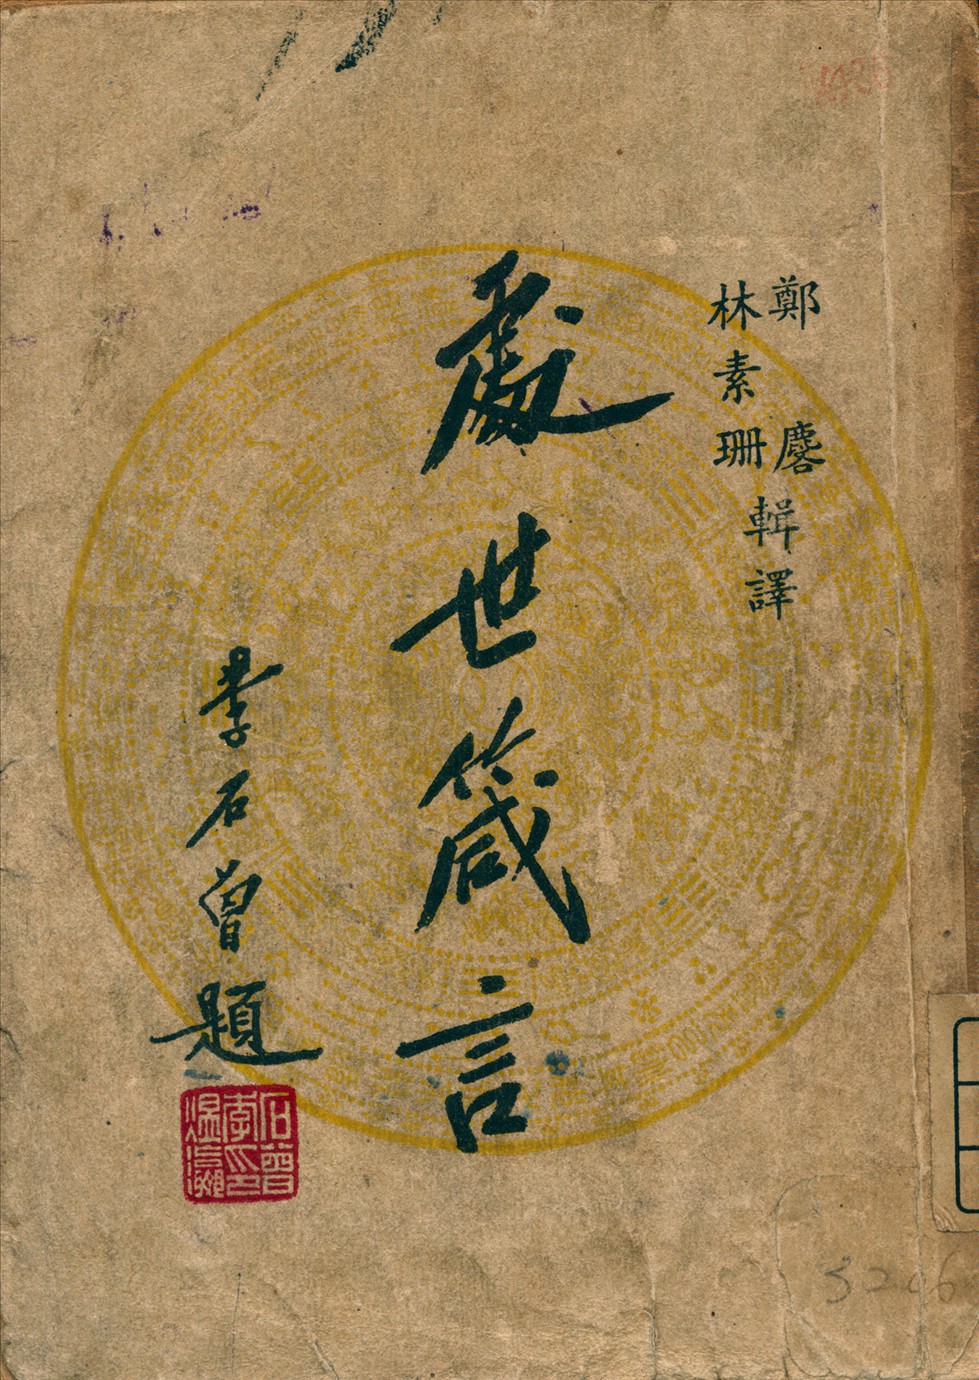 鄭麐
林素珊
輯譯
處世箴言
李石曾題
石曾
李印
煜瀛
3206